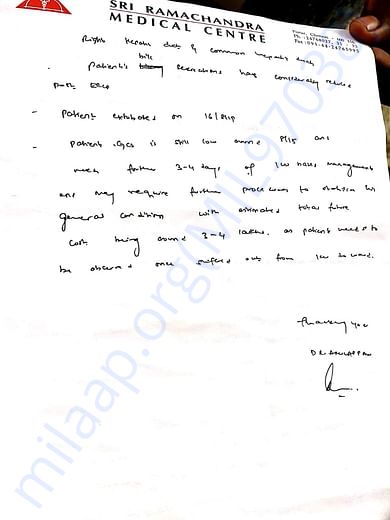 SRI RAMACHANDRA
MEDICAL CENTRE
Porur, Chennai - 600 116
Right hepatic duct & common hepatic duct
bile
- patient's secretions has considerably reduced
post ERCP
- patient extubated on 16/8/19
- patient GCS is still low around 8/15 and
need further 3-4 days of ICU based management
and may require further procedures to stabilise his
general condition with estimated total future
cost being around 3-4 lakhs. as patient needs to
be observed once shifted out from ICU to ward.
Thanking you
milaap.org/(MIL-97038